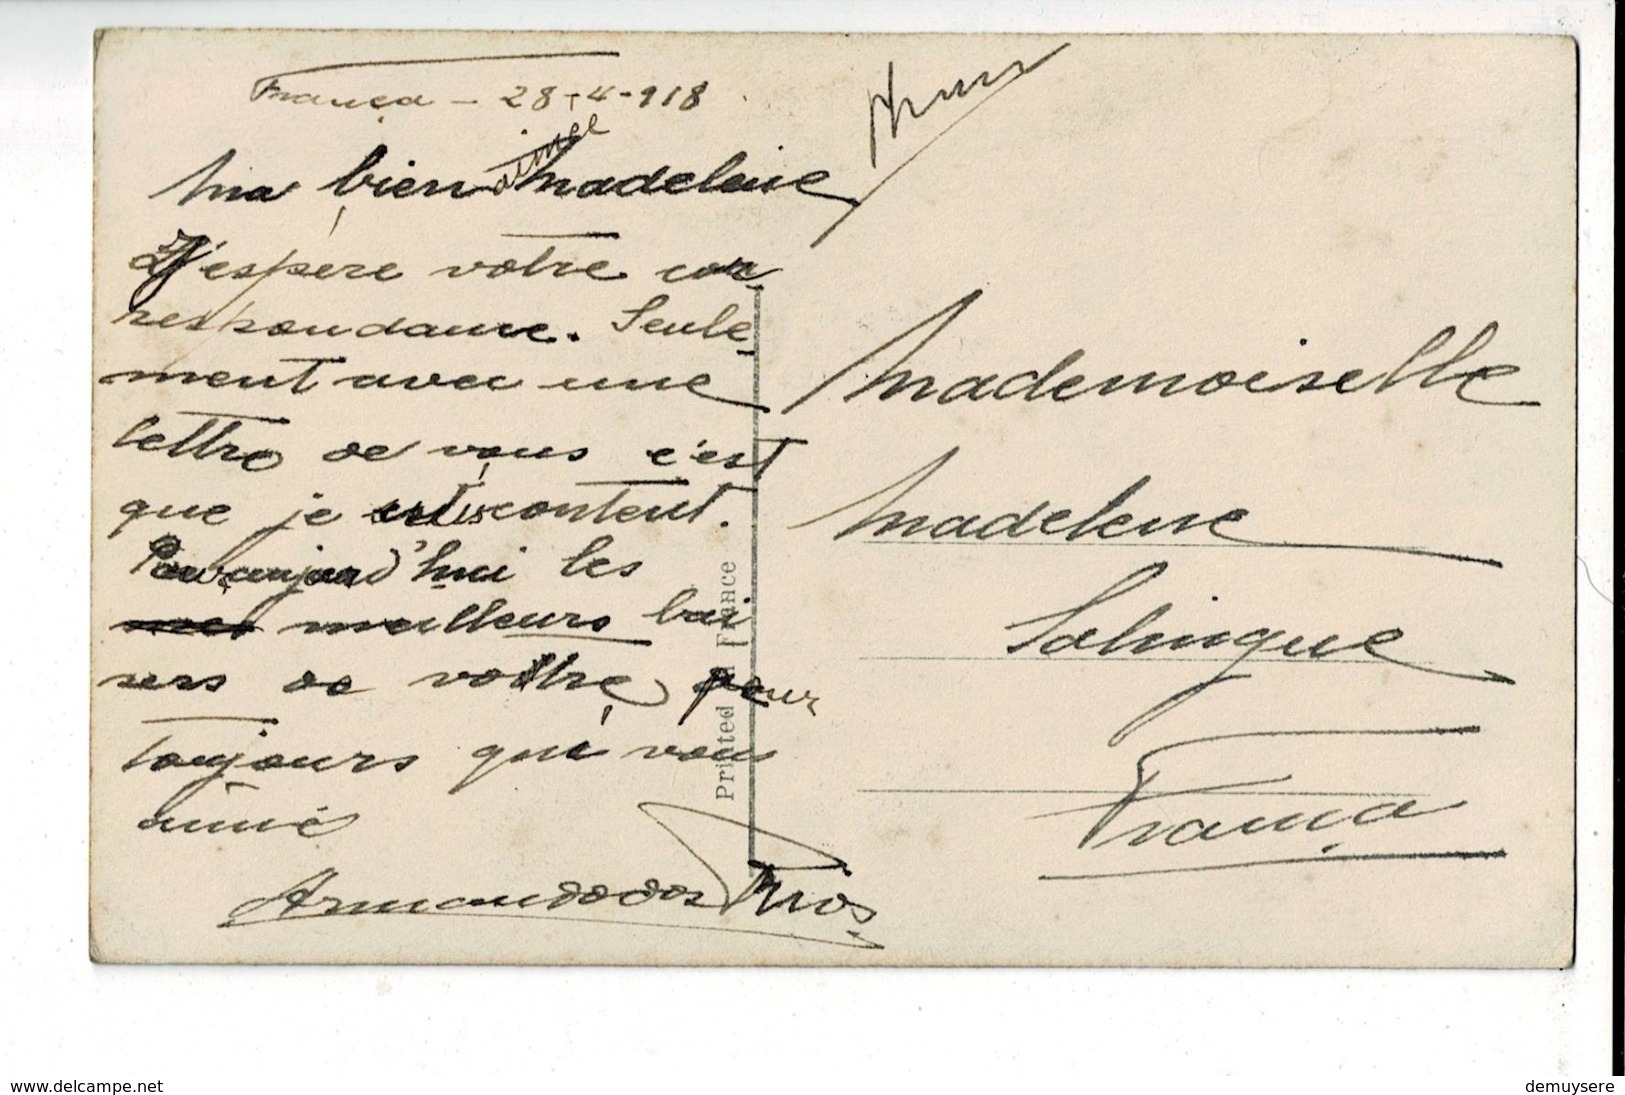 França - 28-4-918
Ma bien aimée Madeleine
J'espère votre cor-
respondance. Seule-
ment avec une
lettre de vous c'est
que je suis content.
Pour aujourd'hui les
meilleurs bai
sers de votre pour
toujours qui vous
aimé
Armando dos Rios
Mademoiselle
Madeleine
Salingue
França
Printed in France
www.delcampe.net
demuysere